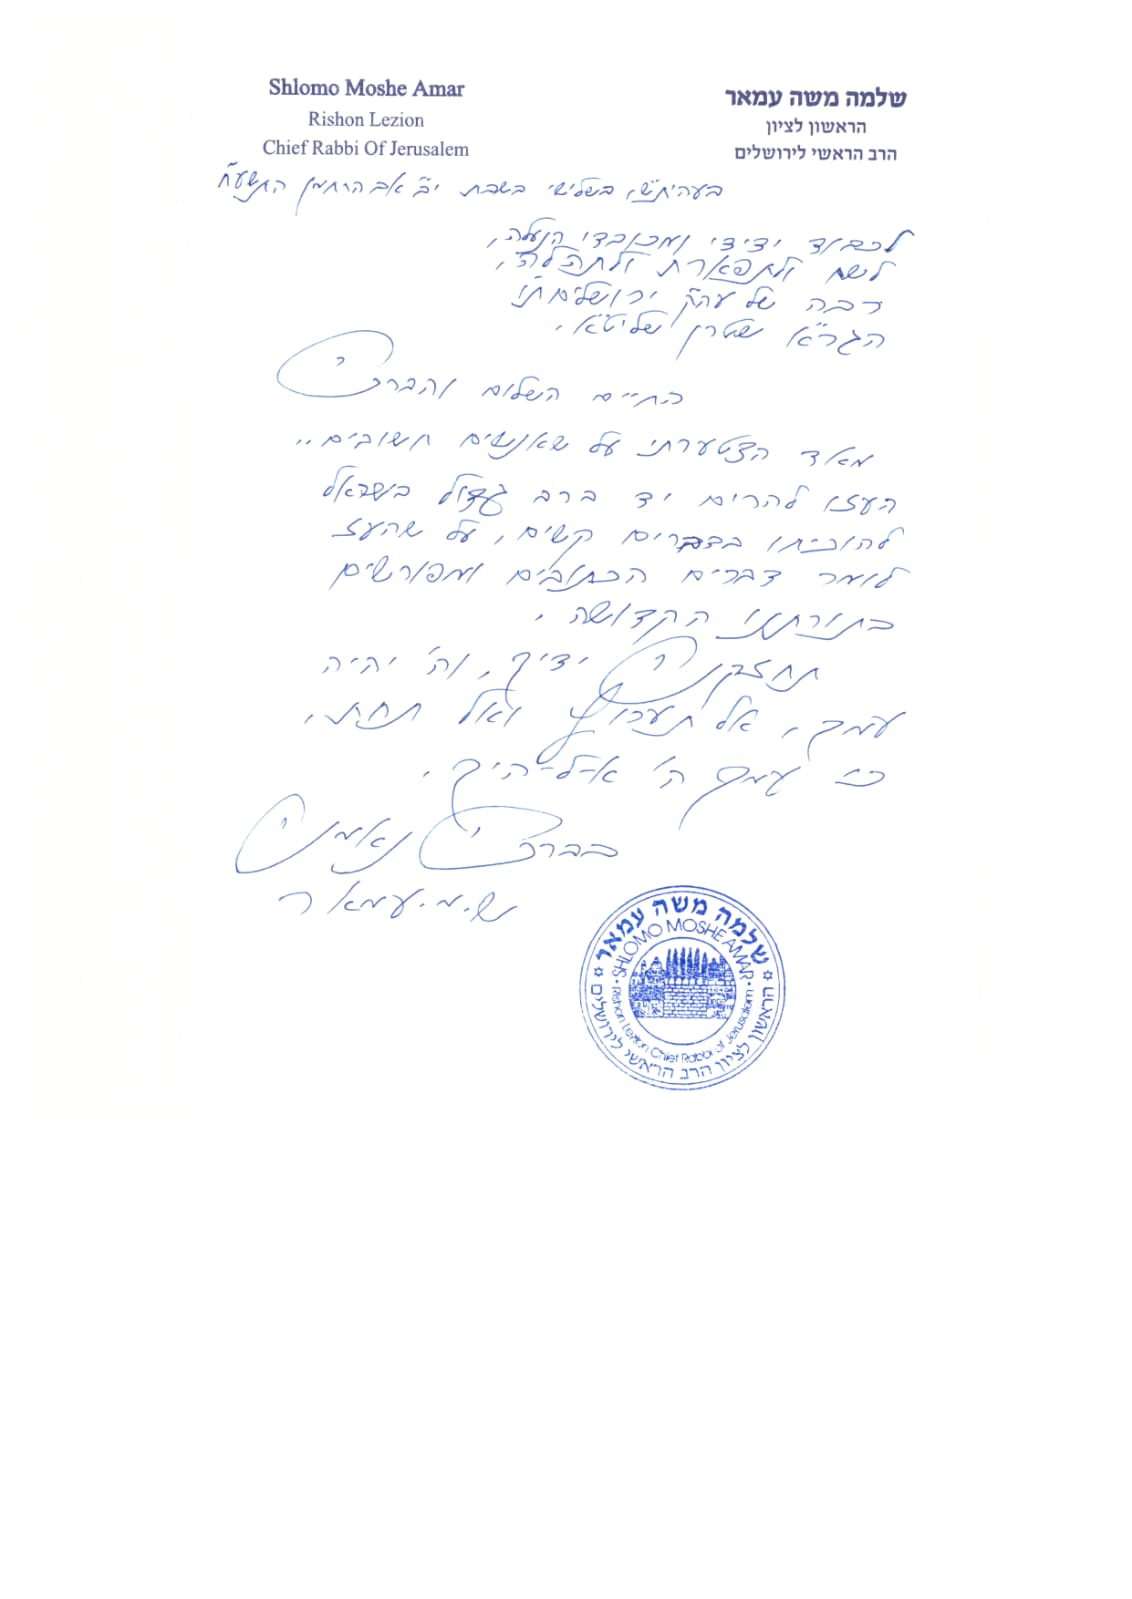 Shlomo Moshe Amar
Rishon Lezion
Chief Rabbi Of Jerusalem
שלמה משה עמאר
הראשון לציון
הרב הראשי לירושלים
בעהית"ש, בשלישי בשבת י"ב אב הרחמן התשע"ח
לכבוד ידידי ומכובדי הנעלה,
לשם ולתפארת ולתהלה,
רבה של עה"ק ירושלים ת"ו
הגר"א שטרן שליט"א,
החיים השלום והברכה
מאד הצטערתי על שאנשים חשובים..
העזו להרים יד ברב גדול בישראל
להוכיחו בדברים קשים, על שהעז
לומר דברים הכתובים ומפורשים
בתורתנו הקדושה,
תחזקנה ידיך, וה' יהיה
עמך, אל תערוץ ואל תחת,
כי עמך ה' א-ל-היך,
בברכה נאמנה
ש.מ.עמאר
שלמה משה עמאר
SHLOMO MOSHE AMAR
Rishon Lezion Chief Rabbi of Jerusalem
הראשון לציון הרב הראשי לירושלים